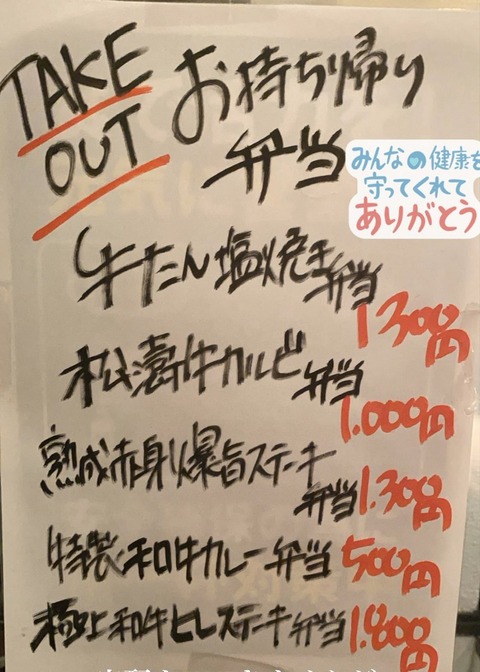 TAKE
OUT
お持ち帰り
弁当
みんなの健康を
守ってくれて
ありがとう
牛たん塩焼き弁当
1300円
松濤牛カルビ弁当
1.000円
熟成赤身爆旨ステーキ
弁当1.300円
特製和牛カレー弁当 500円
極上和牛ヒレステーキ弁当 1.800円